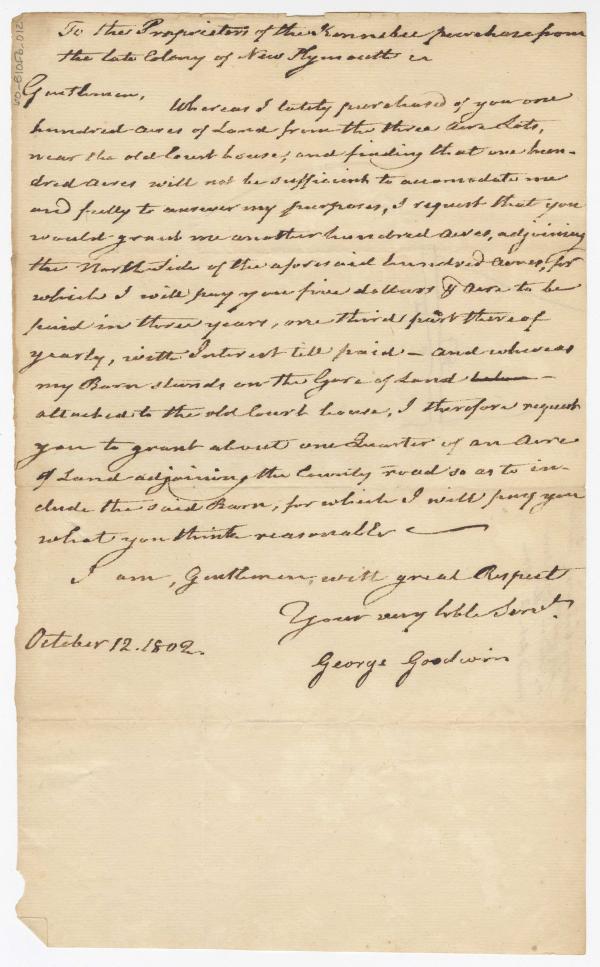 To the Proprietors of the Kennebec purchase from
the late Colony of New Plymouth
Gentlemen,
Whereas I lately purchased of you one
hundred Acres of Land from the three Acre Lots,
near the old Court house, and finding that one hun-
dred Acres will not be sufficient to accomodate me
and fully to answer my purposes, I request that you
would grant me another hundred Acres, adjoining
the North Side of the aforesaid hundred Acres, for
which I will pay you five dollars ⅌ Acre to be
paid in three years, one third part thereof
yearly, with Interest till paid — and whereas
my Barn stands on the Gore of Land —
attached to the old Court house, I therefore request
you to grant about one Quarter of an Acre
of Land adjoining the County road so as to in-
clude the said Barn, for which I will pay you
what you think reasonable
I am, Gentlemen, with great Respect
Your very hble Servt.
October 12. 1802.
George Goodwin